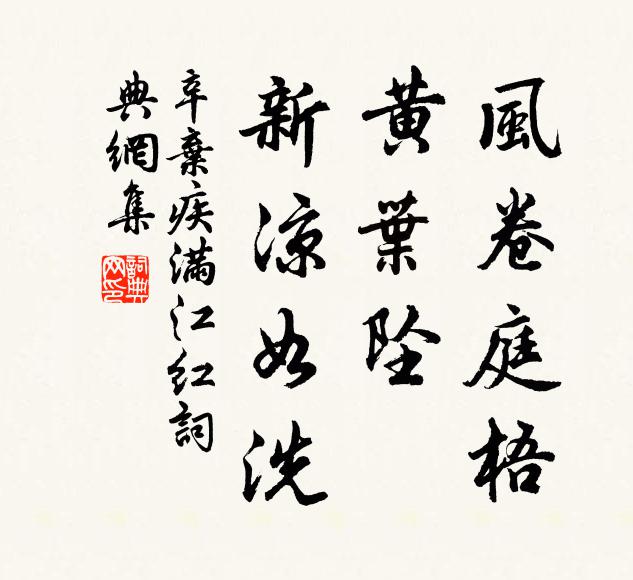 風卷庭梧
黃葉墜
新涼如洗
辛棄疾滿江紅詞
典網集
詞典網印